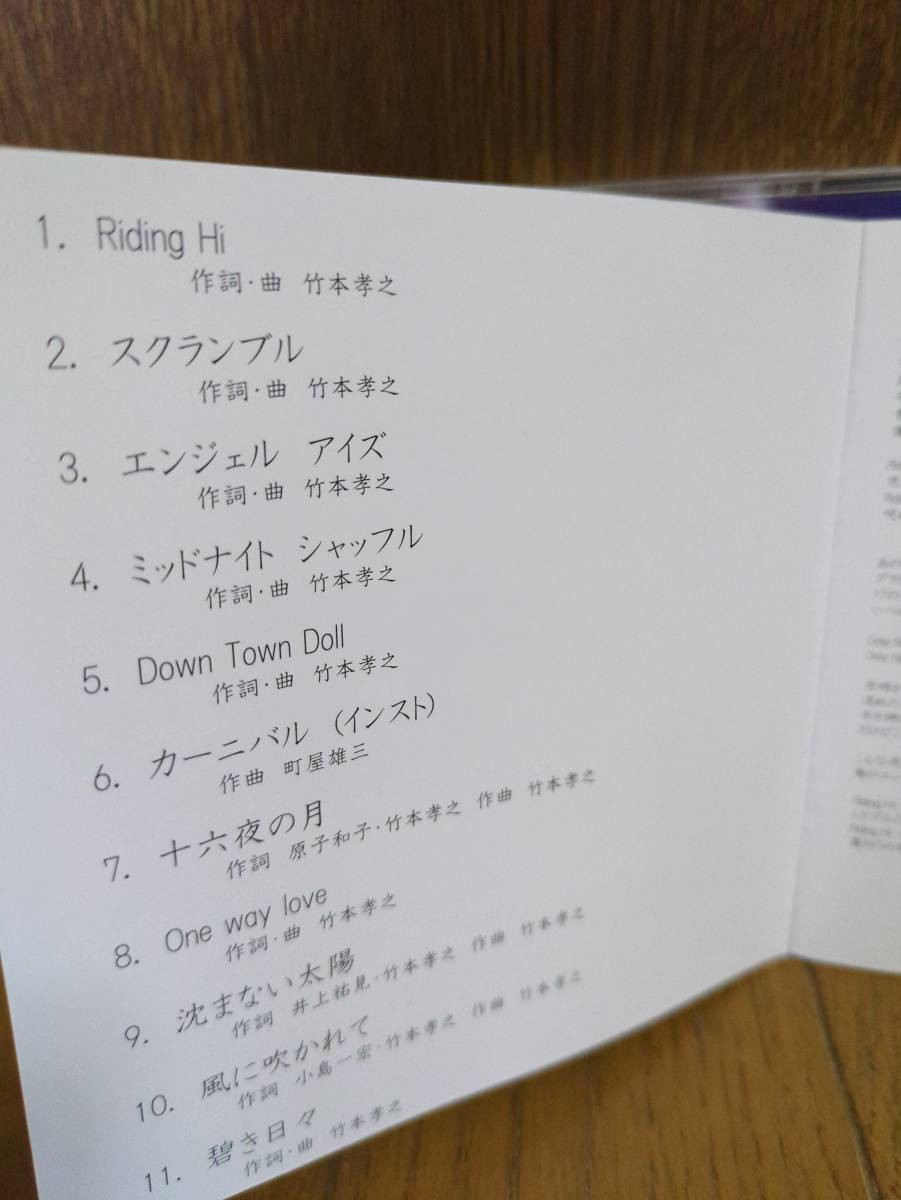 1. Riding Hi
作詞・曲 竹本孝之
2. スクランブル
作詞・曲 竹本孝之
3. エンジェル アイズ
作詞・曲 竹本孝之
4. ミッドナイト シャッフル
作詞・曲 竹本孝之
5. Down Town Doll
作詞・曲 竹本孝之
6. カーニバル (インスト)
作曲 町屋雄三
7. 十六夜の月
作詞 原子和子・竹本孝之 作曲 竹本孝之
8. One way love
作詞・曲 竹本孝之
9. 沈まない太陽
作詞 井上祐見・竹本孝之 作曲 竹本孝之
10. 風に吹かれて
作詞 小島一宏・竹本孝之 作曲 竹本孝之
11. 碧き日々
作詞・曲 竹本孝之